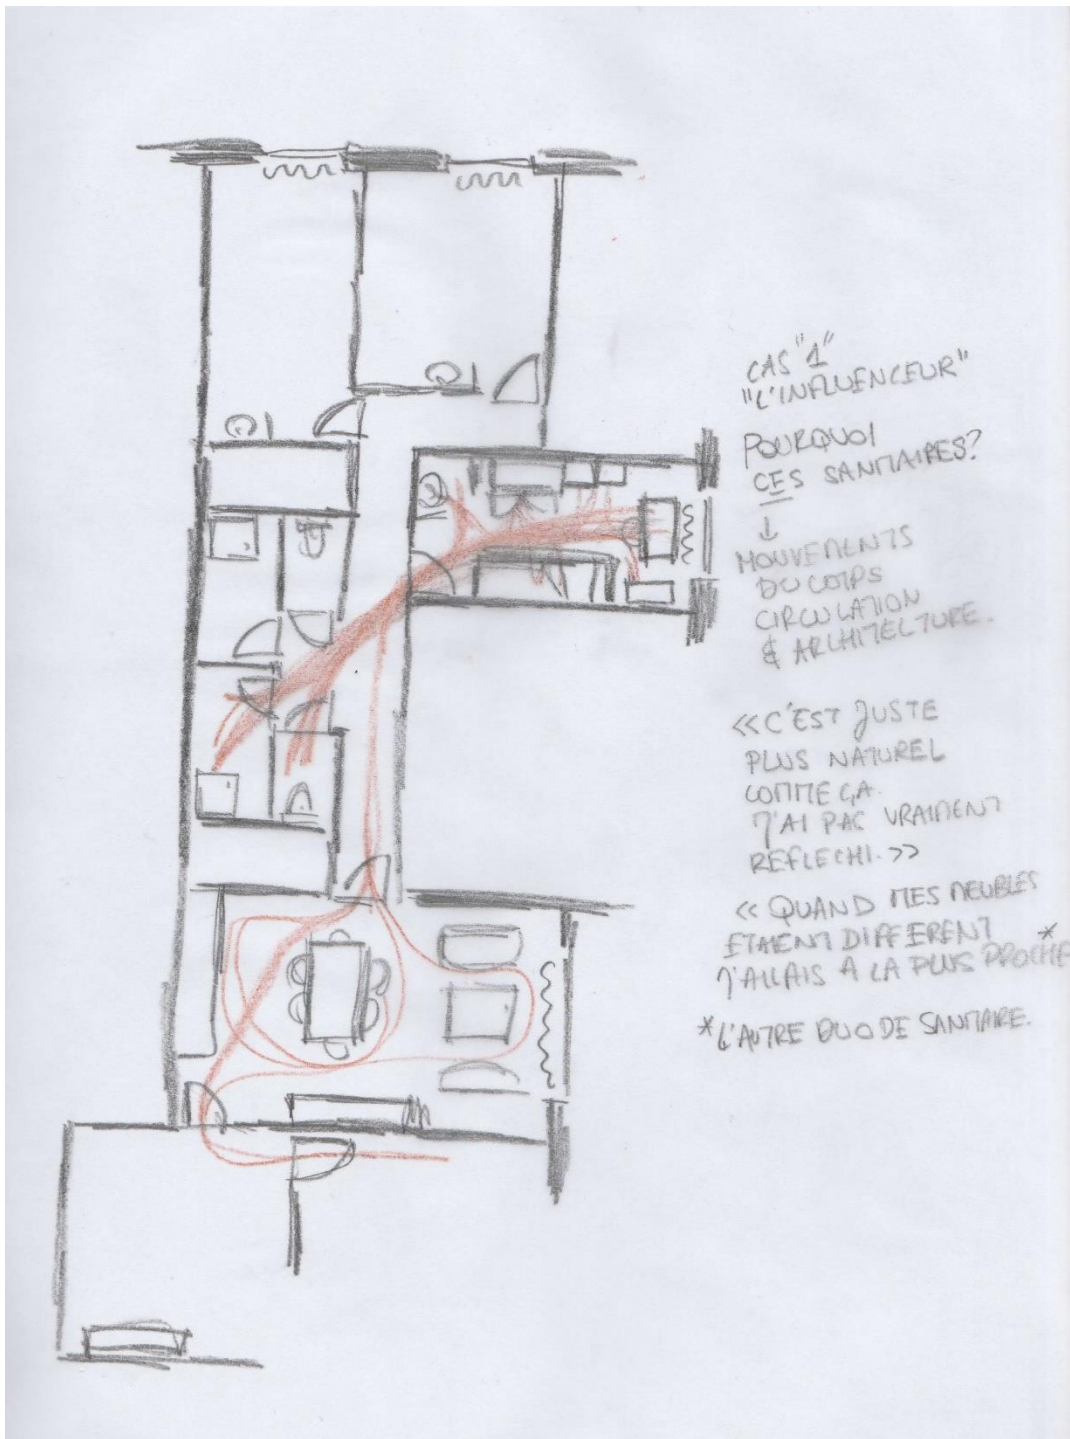 CAS "1"
"L'INFLUENCEUR"
POURQUOI
CES SANITAIRES?
↓
MOUVEMENTS
DU CORPS
CIRCULATION
& ARCHITECTURE.
<<C'EST JUSTE
PLUS NATUREL
COMME ÇA.
J'AI PAS VRAIMENT
REFLECHI.>>
<< QUAND MES MEUBLES
ETAIENT DIFFERENT
J'ALLAIS A LA PLUS PROCHE*
*L'AUTRE DUO DE SANITAIRE.